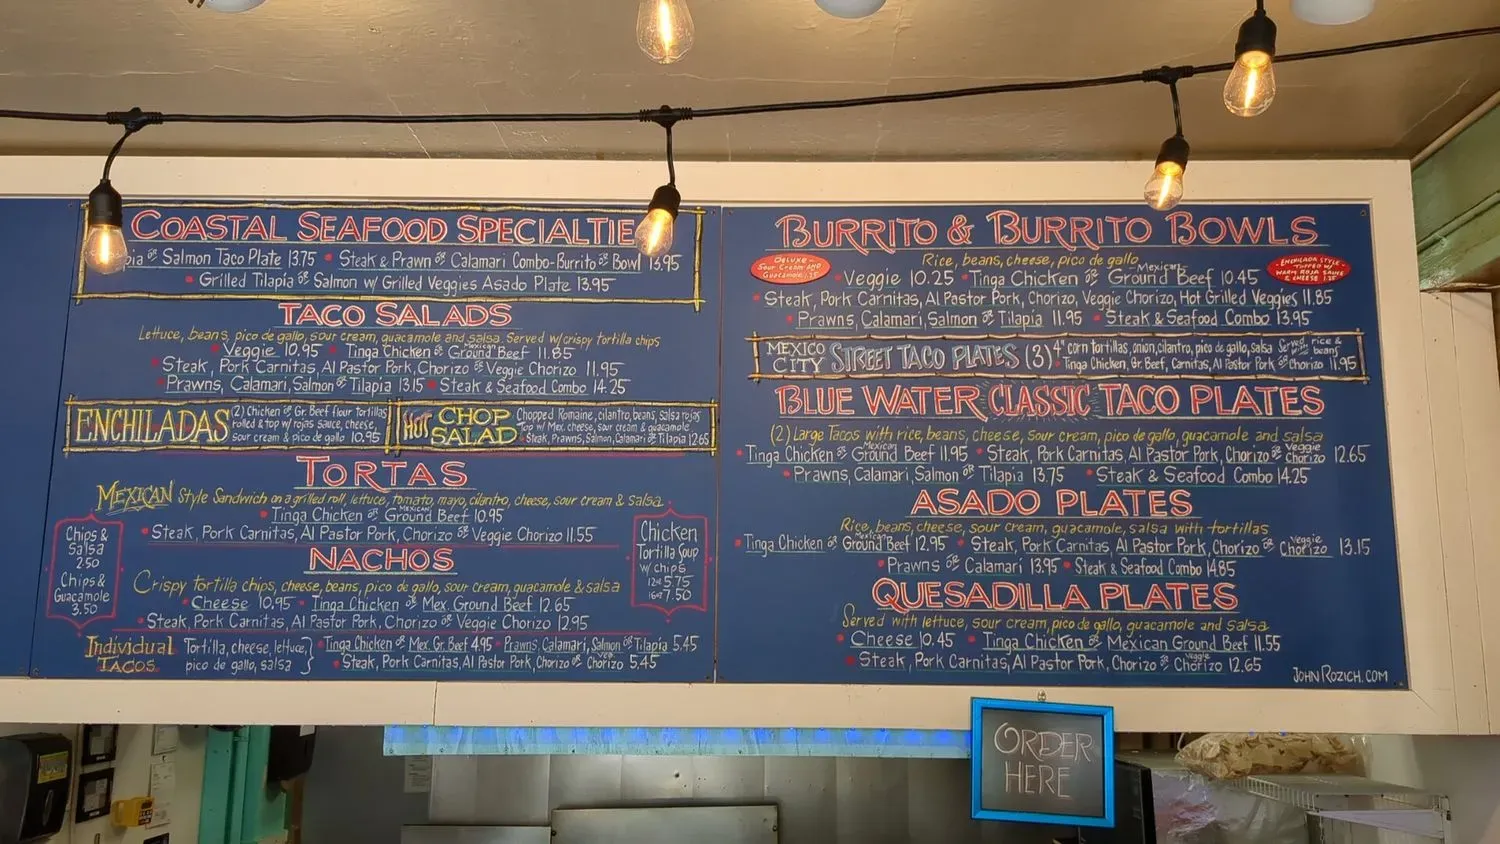 COASTAL SEAFOOD SPECIALTIE
pia or Salmon Taco Plate 13.75 • Steak & Prawn or Calamari Combo-Burrito or Bowl 13.95
• Grilled Tilapia or Salmon w/ Grilled Veggies Asado Plate 13.95
TACO SALADS
Lettuce, beans, pico de gallo, sour cream, guacamole and salsa. Served w/crispy tortilla chips
• Veggie 10.95 • Tinga Chicken or Mexican Ground Beef 11.85
• Steak, Pork Carnitas, Al Pastor Pork, Chorizo or Veggie Chorizo 11.95
• Prawns, Calamari, Salmon or Tilapia 13.15 • Steak & Seafood Combo 14.25
ENCHILADAS
(2) Chicken or Gr. Beef flour tortillas
rolled & top w/rojas sauce, cheese,
sour cream & pico de gallo 10.95
HOT CHOP SALAD
Chopped Romaine, cilantro, beans, salsa rojas
Top w/ Mex. cheese, sour cream & guacamole
• Steak, Prawns, Salmon, Calamari or Tilapia 12.65
TORTAS
MEXICAN Style Sandwich on a grilled roll, lettuce, tomato, mayo, cilantro, cheese, sour cream & salsa
• Tinga Chicken or Mexican Ground Beef 10.95
• Steak, Pork Carnitas, Al Pastor Pork, Chorizo or Veggie Chorizo 11.55
Chips &
Salsa
2.50
Chips &
Guacamole
3.50
Chicken
Tortilla Soup
w/ chips
12oz 5.75
16oz 7.50
NACHOS
Crispy tortilla chips, cheese, beans, pico de gallo, sour cream, guacamole & salsa
• Cheese 10.95 • Tinga Chicken or Mex. Ground Beef 12.65
• Steak, Pork Carnitas, Al Pastor Pork, Chorizo or Veggie Chorizo 12.95
Individual
TACOS
Tortilla, cheese, lettuce,
pico de gallo, salsa
• Tinga Chicken or Mex. Gr. Beef 4.95 • Prawns, Calamari, Salmon or Tilapia 5.45
• Steak, Pork Carnitas, Al Pastor Pork, Chorizo or Veg. Chorizo 5.45
BURRITO & BURRITO BOWLS
Rice, beans, cheese, pico de gallo
DELUXE-
Sour Cream AND
Guacamole 1.75
ENCHILADA STYLE-
TOPPED W/
WARM ROJA SAUCE
& CHEESE 1.75
• Veggie 10.25 • Tinga Chicken or Mexican Ground Beef 10.45
• Steak, Pork Carnitas, Al Pastor Pork, Chorizo, Veggie Chorizo, Hot Grilled Veggies 11.85
• Prawns, Calamari, Salmon or Tilapia 11.95 • Steak & Seafood Combo 13.95
MEXICO CITY STREET TACO PLATES (3)
4" corn tortillas, onion, cilantro, pico de gallo, salsa Served with rice & beans
• Tinga Chicken, Gr. Beef, Carnitas, Al Pastor Pork or Chorizo 11.95
BLUE WATER CLASSIC TACO PLATES
(2) Large Tacos with rice, beans, cheese, sour cream, pico de gallo, guacamole and salsa
• Tinga Chicken or Mexican Ground Beef 11.95 • Steak, Pork Carnitas, Al Pastor Pork, Chorizo or Veggie Chorizo 12.65
• Prawns, Calamari, Salmon or Tilapia 13.75 • Steak & Seafood Combo 14.25
ASADO PLATES
Rice, beans, cheese, sour cream, guacamole, salsa with tortillas
• Tinga Chicken or Mexican Ground Beef 12.95 • Steak, Pork Carnitas, Al Pastor Pork, Chorizo or Veggie Chorizo 13.15
• Prawns or Calamari 13.95 • Steak & Seafood Combo 14.85
QUESADILLA PLATES
Served with lettuce, sour cream, pico de gallo, guacamole and salsa
• Cheese 10.45 • Tinga Chicken or Mexican Ground Beef 11.55
• Steak, Pork Carnitas, Al Pastor Pork, Chorizo or Veggie Chorizo 12.65
JOHNROZICH.COM
ORDER
HERE